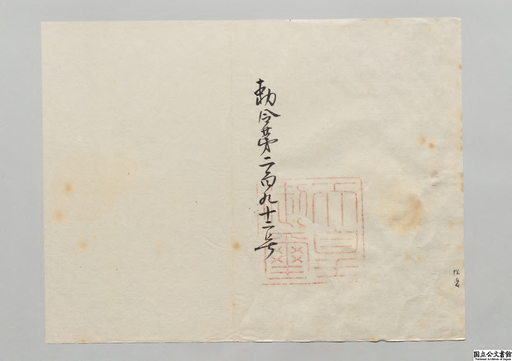 勅令第二百九十二号
天皇
御璽
国立公文書館
National Archives of Japan